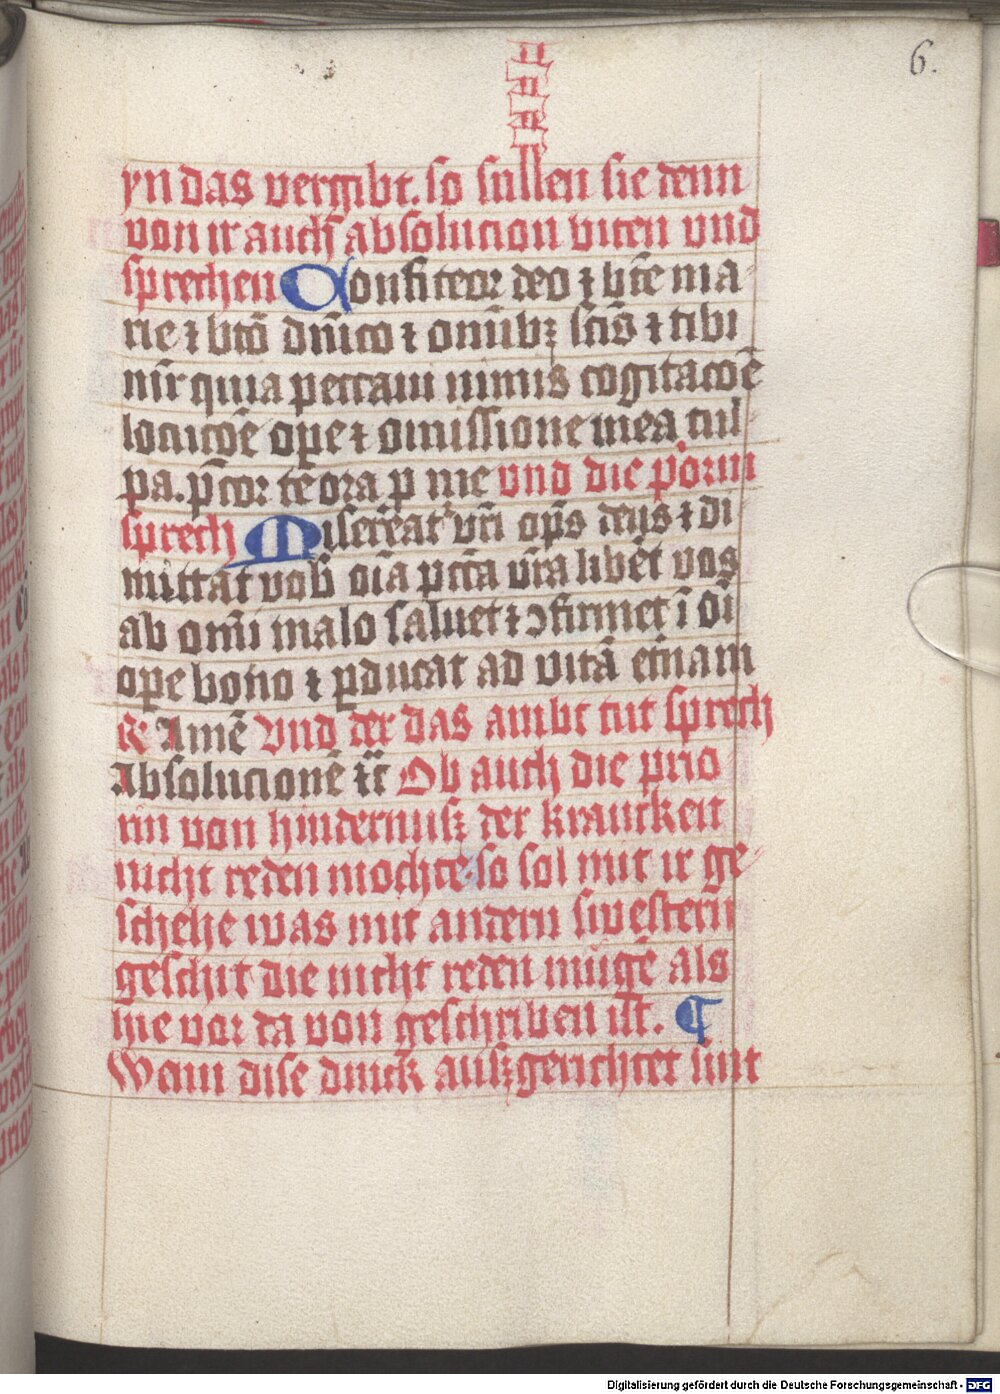 6.
yn das vergibt. so sullen sie denn
von ir auch absolucion biten vnd
sprechen Confiteor deo ⁊ btē ma
rie ⁊ btō dnīco ⁊ omībꝫ sctīs ⁊ tibi
mr̄ quia peccaui nimis cogitacōē
locucōē ope ⁊ omissione mea cul
pa. p̄cor te ora p me vnd die p̊orin
sprech Misereat͛ vrī op̄s deus ⁊ di
mittat vob̄ oīa pctā vrā libēt vos
ab omī malo saluet ⁊ ꝯfirmet ī oī
ope bono ⁊ pducat ad vitā et̄nam
R Amē Vnd der das ambt tut sprech
Absolucionē ꝛc̄ Ob auch die prio
rin von hindernusz der kranckeit
nicht reden mochte so sol mit ir ge
schehe was mit andern swestern
geschit die nicht reden mugē als
hie vor da von geschriben ist. ¶
Wann dise dinck ausz gerichtet sint
Digitalisierung gefördert durch die Deutsche Forschungsgemeinschaft - DFG